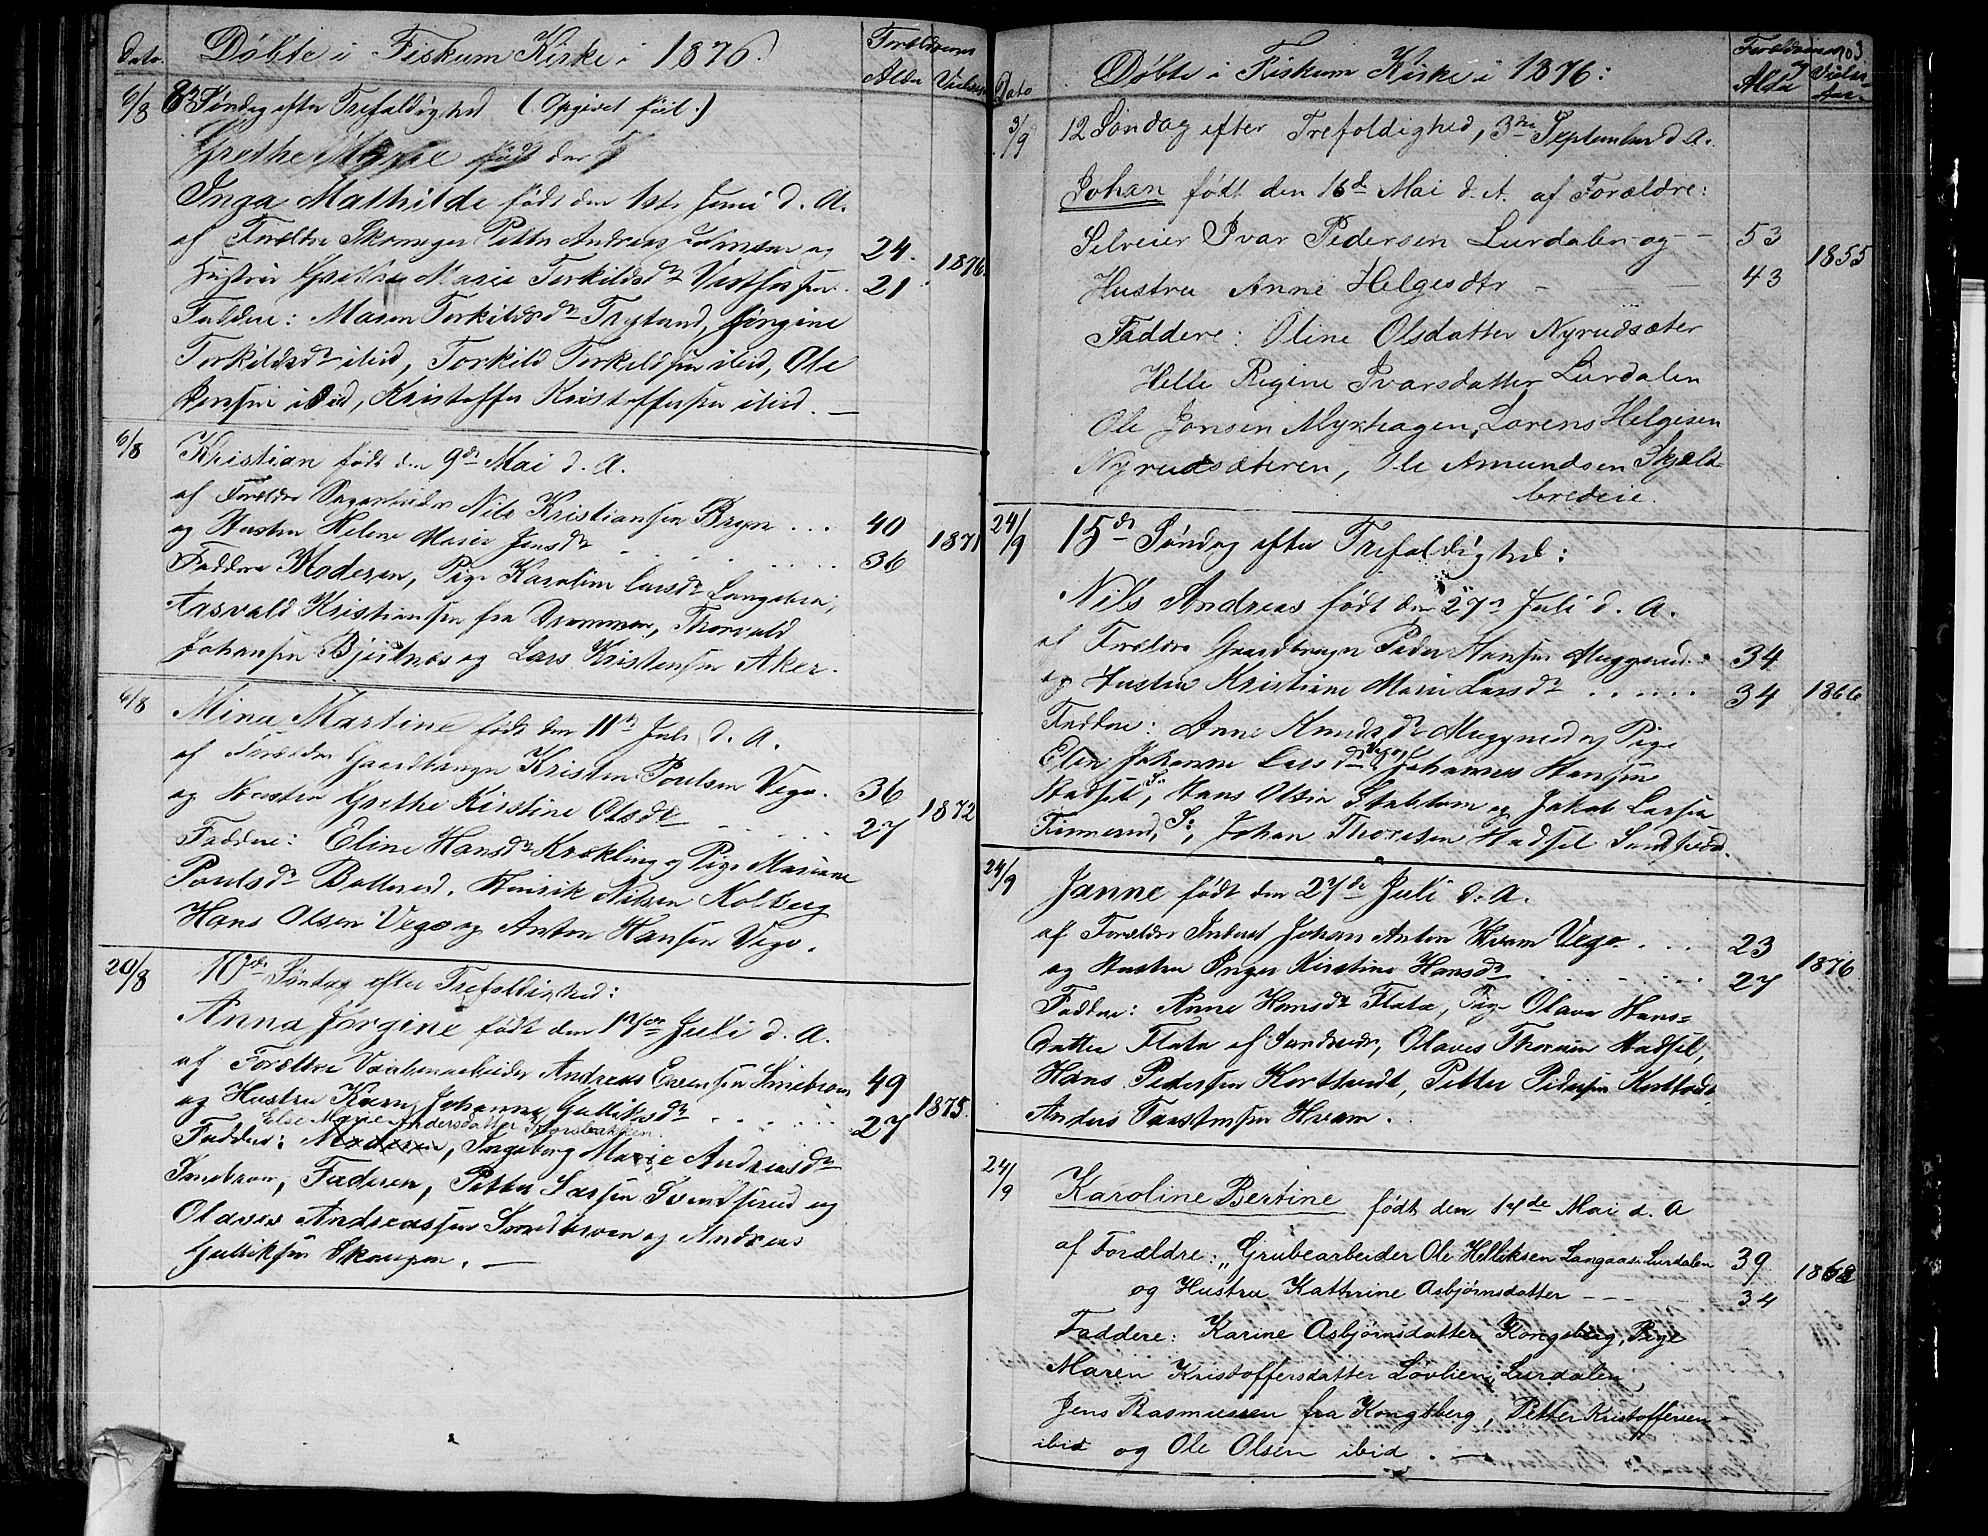 Dato.
Døbte i Fiskum Kirke i 1876.
Forældrenes
Alder
Vielses
6/8
8de Søndag efter Trefoldighed (Opgivet feil.)
Grethe Marie født den
Inga Mathilde født den 1ste Juni d. A.
af Forældre Skomager Petter Andreas og
24.
1876.
Hustru Grethe Marie Torkildsdr Vestfossen.
21.
Faddere: Maren Torkildsdr Jørgine
Torkildsdr ibid, Torkild Torkildsen ibid, Ole
Jensen ibid, Kristoffer Kristoffersen ibid. —
6/8
Kristian født den 9de Mai d. A.
af Forældre Sagarbeider Nils Kristiansen Bryn ...
40
1871
og Hustru Helene Marie Jensdr
36
Faddere Moderen, Pige Karoline Larsdr
Aasvald Kristiansen fra Drammen, Thorvald
Johansen Bjertnæs og Lars Kristensen Aker.
6/8
Mina Martine født den 11te Juli d. A.
af Forældre Gaardbruger Kristen Poulsen Vego.
36
1872
og Hustru Grethe Kirstine Olsdr
27
Faddere: Eline Hansdr Krekling og Pige Mariane
Poulsdr Bollerud, Henrik Nilsen Kolberg
Hans Olsen Vego og Anton Hansen Vego.
20/8
10de Søndag efter Trefoldighed:
Anna Jørgine født den 17de Juli d. A.
af Forældre Andreas Evensen Smebroen
49
1875.
og Hustru Karen Johanne Gulliksdr
27
Else Marie Andersdatter
Faddere: Moderen, Ingeborg Marie Andreasdr
Smebroen, Faderen, Petter Larsen og
Olaves Andreassen og Andreas
Gulliksen Skaugen. —
Dato
Døbte i Fiskum Kirke i 1876:
Forældrenes
103
Alder
Vielses
Aar.
3/9
12 Søndag efter Trefoldighed, 3die September d. A.
Johan født den 16de Mai d. A. af Forældre:
Selveier Ivar Pedersen Lurdalen og -
53
1855
Hustru Anne Helgesdtr -
43
Faddere: Oline Olsdatter Nyrudsæter
Helle Regine Ivarsdatter Lurdalen
Ole Jonsen Myrhagen, Lorens Helgesen
Nyrudsæteren, Ole Amundsen Skjæld-
bredeie.
24/9
15de Søndag efter Trefoldighed:
Nils Andreas født den 27de Juli d. A.
af Forældre Gaardbruger Peder Hansen Muggerud.
34
1866
og Hustru Kristiane Marie Larsdr ......
34
Faddere: Anne Knudsdr Muggerud og Pige
Elen Johanne Larsdr Johannes Hansen
Hadsel, S., Hans Olsen og Jakob Larsen
S., Johan Thoresen Hadsel
24/9
Janne født den 27de Juli d. A.
af Forældre Inderst Johan Anton Hvam Vego. ...
23
1876.
og Hustru Inger Kirstine Hansdr
27
Faddere: Anne Hansdr Flata, Pige Olava Hans=
datter Flata af Sandsvær, Olaves Thoresen Hadsel,
Hans Pedersen Petter Pedersen
Anders Hvam.
24/9
Karoline Bertine født den 14de Mai d. A
af Forældre: „Grubearbeider Ole Helliksen Langaas i Lurdalen
39
og Hustru Kathrine Asbjørnsdatter - - - -
34
Faddere: Karine Asbjørnsdatter, Kongsberg, Pige
Maren Kristoffersdatter Løvlien, Lurdalen,
Jens Rasmussen fra Kongsberg, Petter Kristoffersen -
ibid og Ole Olsen ibid. —